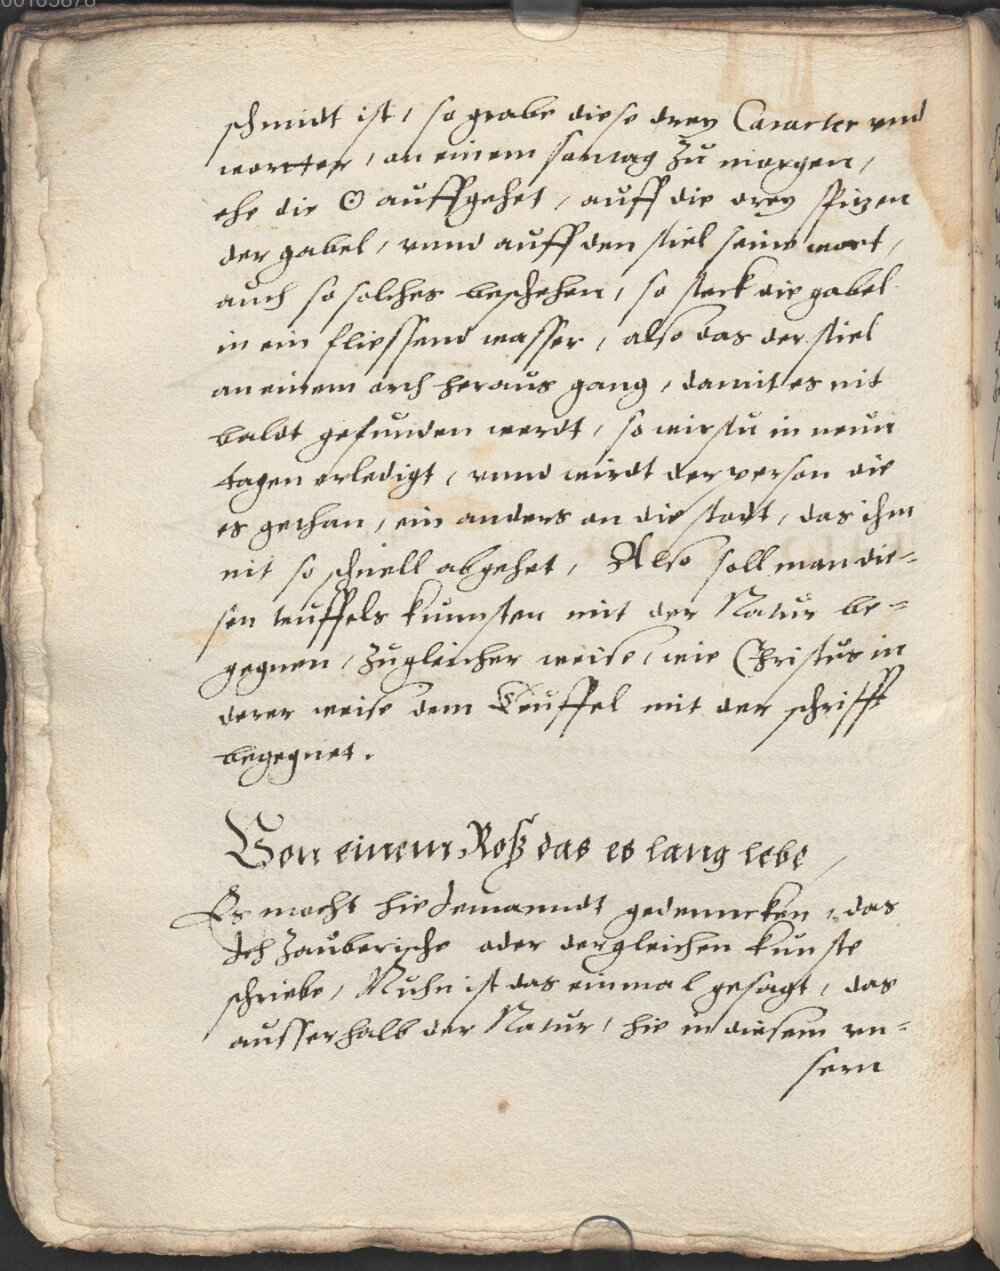 00105878
schmidt ist, so grabe diese drey Caracter vnd
wortter, an einem sontag zu morgen,
ehe die ☉ auffgehet, auff die drey spizen
der gabel, vnnd auff den stiel seine wort,
auch so solches beschehen, so steck die gabel
in ein fliessend wasser, also das der stiel
an einem orth heraus gang, damit es nit
baldt gefunden werdt, so wirstu in neun
tagen erledigt, vnnd wirdt der person die
es gethan, ein anders an die stadt, das ihm
nit so schnell abgehet, Also soll man die-
sen teuffels kunnsten mit der Natur be-
gegnen, zugleicher weise, wie Christus in
derer weise dem Teuffel mit der schrifft
begegnet.
Von einem Roß das es lang lebe
Es mocht hie Jemanndt gedenncken, das
Ich Zauberische oder dergleichen kunste
schriebe, Nuhn ist das einmal gesagt, das
ausserhalb der Natur, hie in diesem vn-
sern